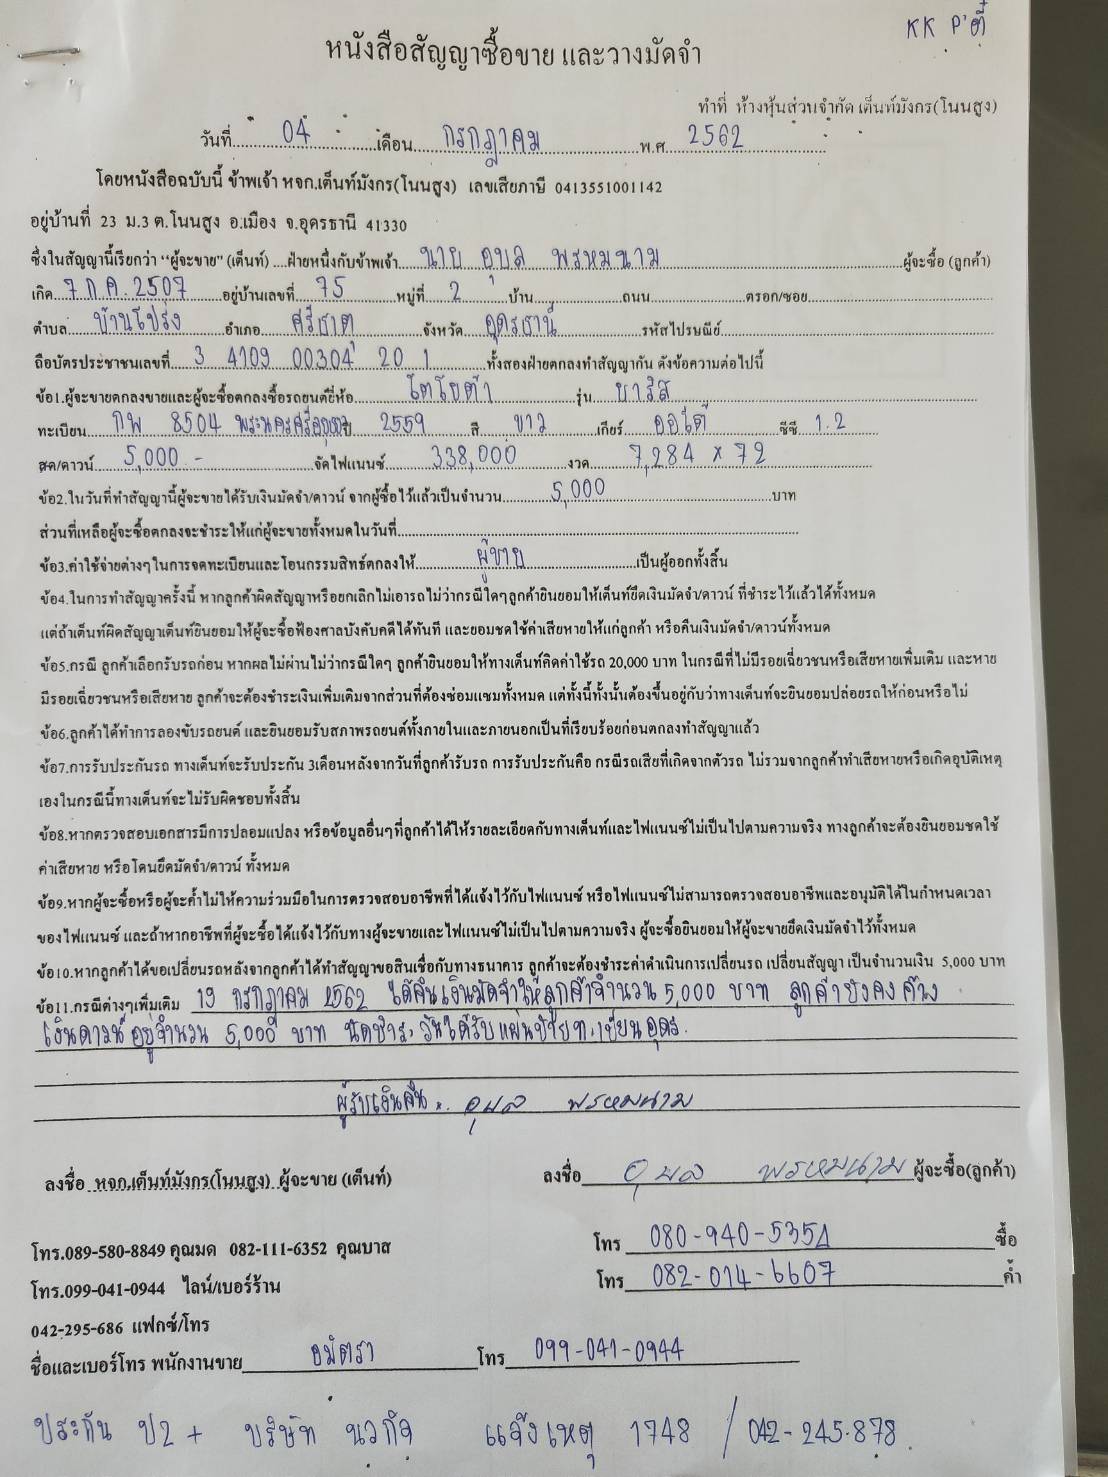 KK P'ตี้
หนังสือสัญญาซื้อขาย และวางมัดจำ
ทำที่ ห้างหุ้นส่วนจำกัด เต็นท์มังกร(โนนสูง)
วันที่ 04 เดือน กรกฎาคม พ.ศ 2562
โดยหนังสือฉบับนี้ ข้าพเจ้า หจก.เต็นท์มังกร(โนนสูง) เลขเสียภาษี 0413551001142
อยู่บ้านที่ 23 ม.3 ต.โนนสูง อ.เมือง จ.อุดรธานี 41330
ซึ่งในสัญญานี้เรียกว่า "ผู้จะขาย" (เต็นท์) ....ฝ่ายหนึ่งกับข้าพเจ้า นาย อุบล พรหมนาม ผู้จะซื้อ (ลูกค้า)
เกิด 7 ก.ค. 2507 อยู่บ้านเลขที่ 75 หมู่ที่ 2 บ้าน ถนน ตรอก/ซอย
ตำบล บ้านโปร่ง อำเภอ ศรีธาตุ จังหวัด อุดรธานี รหัสไปรษณีย์
ถือบัตรประชาชนเลขที่ 3 4109 00304 20 1 ทั้งสองฝ่ายตกลงทำสัญญากัน ดังข้อความต่อไปนี้
ข้อ1.ผู้จะขายตกลงขายและผู้จะซื้อตกลงซื้อรถยนต์ยี่ห้อ โตโยต้า รุ่น ยาริส
ทะเบียน กพ 8504 พระนครศรีอยุธยา ปี 2559 สี ขาว เกียร์ ออโต้ ซีซี 1.2
สด/ดาวน์ 5,000 - จัดไฟแนนซ์ 338,000 งวด 7,284 x 72
ข้อ2.ในวันที่ทำสัญญานี้ผู้จะขายได้รับเงินมัดจำ/ดาวน์ จากผู้ซื้อไว้แล้วเป็นจำนวน 5,000 บาท
ส่วนที่เหลือผู้จะซื้อตกลงจะชำระให้แก่ผู้จะขายทั้งหมดในวันที่
ข้อ3.ค่าใช้จ่ายต่างๆในการจดทะเบียนและโอนกรรมสิทธ์ตกลงให้ ผู้ขาย เป็นผู้ออกทั้งสิ้น
ข้อ4.ในการทำสัญญาครั้งนี้ หากลูกค้าผิดสัญญาหรือยกเลิกไม่เอารถไม่ว่ากรณีใดๆลูกค้ายินยอมให้เต็นท์ยึดเงินมัดจำ/ดาวน์ ที่ชำระไว้แล้วได้ทั้งหมด
แต่ถ้าเต็นท์ผิดสัญญาเต็นท์ยินยอมให้ผู้จะซื้อฟ้องศาลบังคับคดีได้ทันที และยอมชดใช้ค่าเสียหายให้แก่ลูกค้า หรือคืนเงินมัดจำ/ดาวน์ทั้งหมด
ข้อ5.กรณี ลูกค้าเลือกรับรถก่อน หากผลไม่ผ่านไม่ว่ากรณีใดๆ ลูกค้ายินยอมให้ทางเต็นท์คิดค่าใช้รถ 20,000 บาท ในกรณีที่ไม่มีรอยเฉี่ยวชนหรือเสียหายเพิ่มเติม และหาย
มีรอยเฉี่ยวชนหรือเสียหาย ลูกค้าจะต้องชำระเงินเพิ่มเติมจากส่วนที่ต้องซ่อมแซมทั้งหมด แต่ทั้งนี้ทั้งนั้นต้องขึ้นอยู่กับว่าทางเต็นท์จะยินยอมปล่อยรถให้ก่อนหรือไม่
ข้อ6.ลูกค้าได้ทำการลองขับรถยนต์ และยินยอมรับสภาพรถยนต์ทั้งภายในและภายนอกเป็นที่เรียบร้อยก่อนตกลงทำสัญญาแล้ว
ข้อ7.การรับประกันรถ ทางเต็นท์จะรับประกัน 3เดือนหลังจากวันที่ลูกค้ารับรถ การรับประกันคือ กรณีรถเสียที่เกิดจากตัวรถ ไม่รวมจากลูกค้าทำเสียหายหรือเกิดอุบัติเหตุ
เองในกรณีนี้ทางเต็นท์จะไม่รับผิดชอบทั้งสิ้น
ข้อ8.หากตรวจสอบเอกสารมีการปลอมแปลง หรือข้อมูลอื่นๆที่ลูกค้าได้ให้รายละเอียดกับทางเต็นท์และไฟแนนซ์ไม่เป็นไปตามความจริง ทางลูกค้าจะต้องยินยอมชดใช้
ค่าเสียหาย หรือโดนยึดมัดจำ/ดาวน์ ทั้งหมด
ข้อ9.หากผู้จะซื้อหรือผู้จะค้ำไม่ให้ความร่วมมือในการตรวจสอบอาชีพที่ได้แจ้งไว้กับไฟแนนซ์ หรือไฟแนนซ์ไม่สามารถตรวจสอบอาชีพและอนุมัติได้ในกำหนดเวลา
ของไฟแนนซ์ และถ้าหากอาชีพที่ผู้จะซื้อได้แจ้งไว้กับทางผู้จะขายและไฟแนนซ์ไม่เป็นไปตามความจริง ผู้จะซื้อยินยอมให้ผู้จะขายยึดเงินมัดจำไว้ทั้งหมด
ข้อ10.หากลูกค้าได้ขอเปลี่ยนรถหลังจากลูกค้าได้ทำสัญญาขอสินเชื่อกับทางธนาคาร ลูกค้าจะต้องชำระค่าดำเนินการเปลี่ยนรถ เปลี่ยนสัญญา เป็นจำนวนเงิน 5,000 บาท
ข้อ11.กรณีต่างๆเพิ่มเติม 19 กรกฎาคม 2562 ได้คืนเงินมัดจำให้ลูกค้าจำนวน 5,000 บาท ลูกค้ายังคงค้าง
เงินดาวน์อยู่จำนวน 5,000 บาท นัดชำระวันได้รับแผ่นป้ายทะเบียนอุดร.
ผู้รับเงินคืน.. อุบล พรหมนาม
ลงชื่อ หจก.เต็นท์มังกร(โนนสูง) ผู้จะขาย (เต็นท์) ลงชื่อ อุบล พรหมนาม ผู้จะซื้อ(ลูกค้า)
โทร.089-580-8849 คุณมด 082-111-6352 คุณบาส โทร 080-940-5354 ซื้อ
โทร.099-041-0944 ไลน์/เบอร์ร้าน โทร 082-014-6607 ค้ำ
042-295-686 แฟกซ์/โทร
ชื่อและเบอร์โทร พนักงานขาย อมัตรา โทร 099-041-0944
ประกัน ป2+ บริษัท นวกิจ แจ้งเหตุ 1748 / 042-245-878